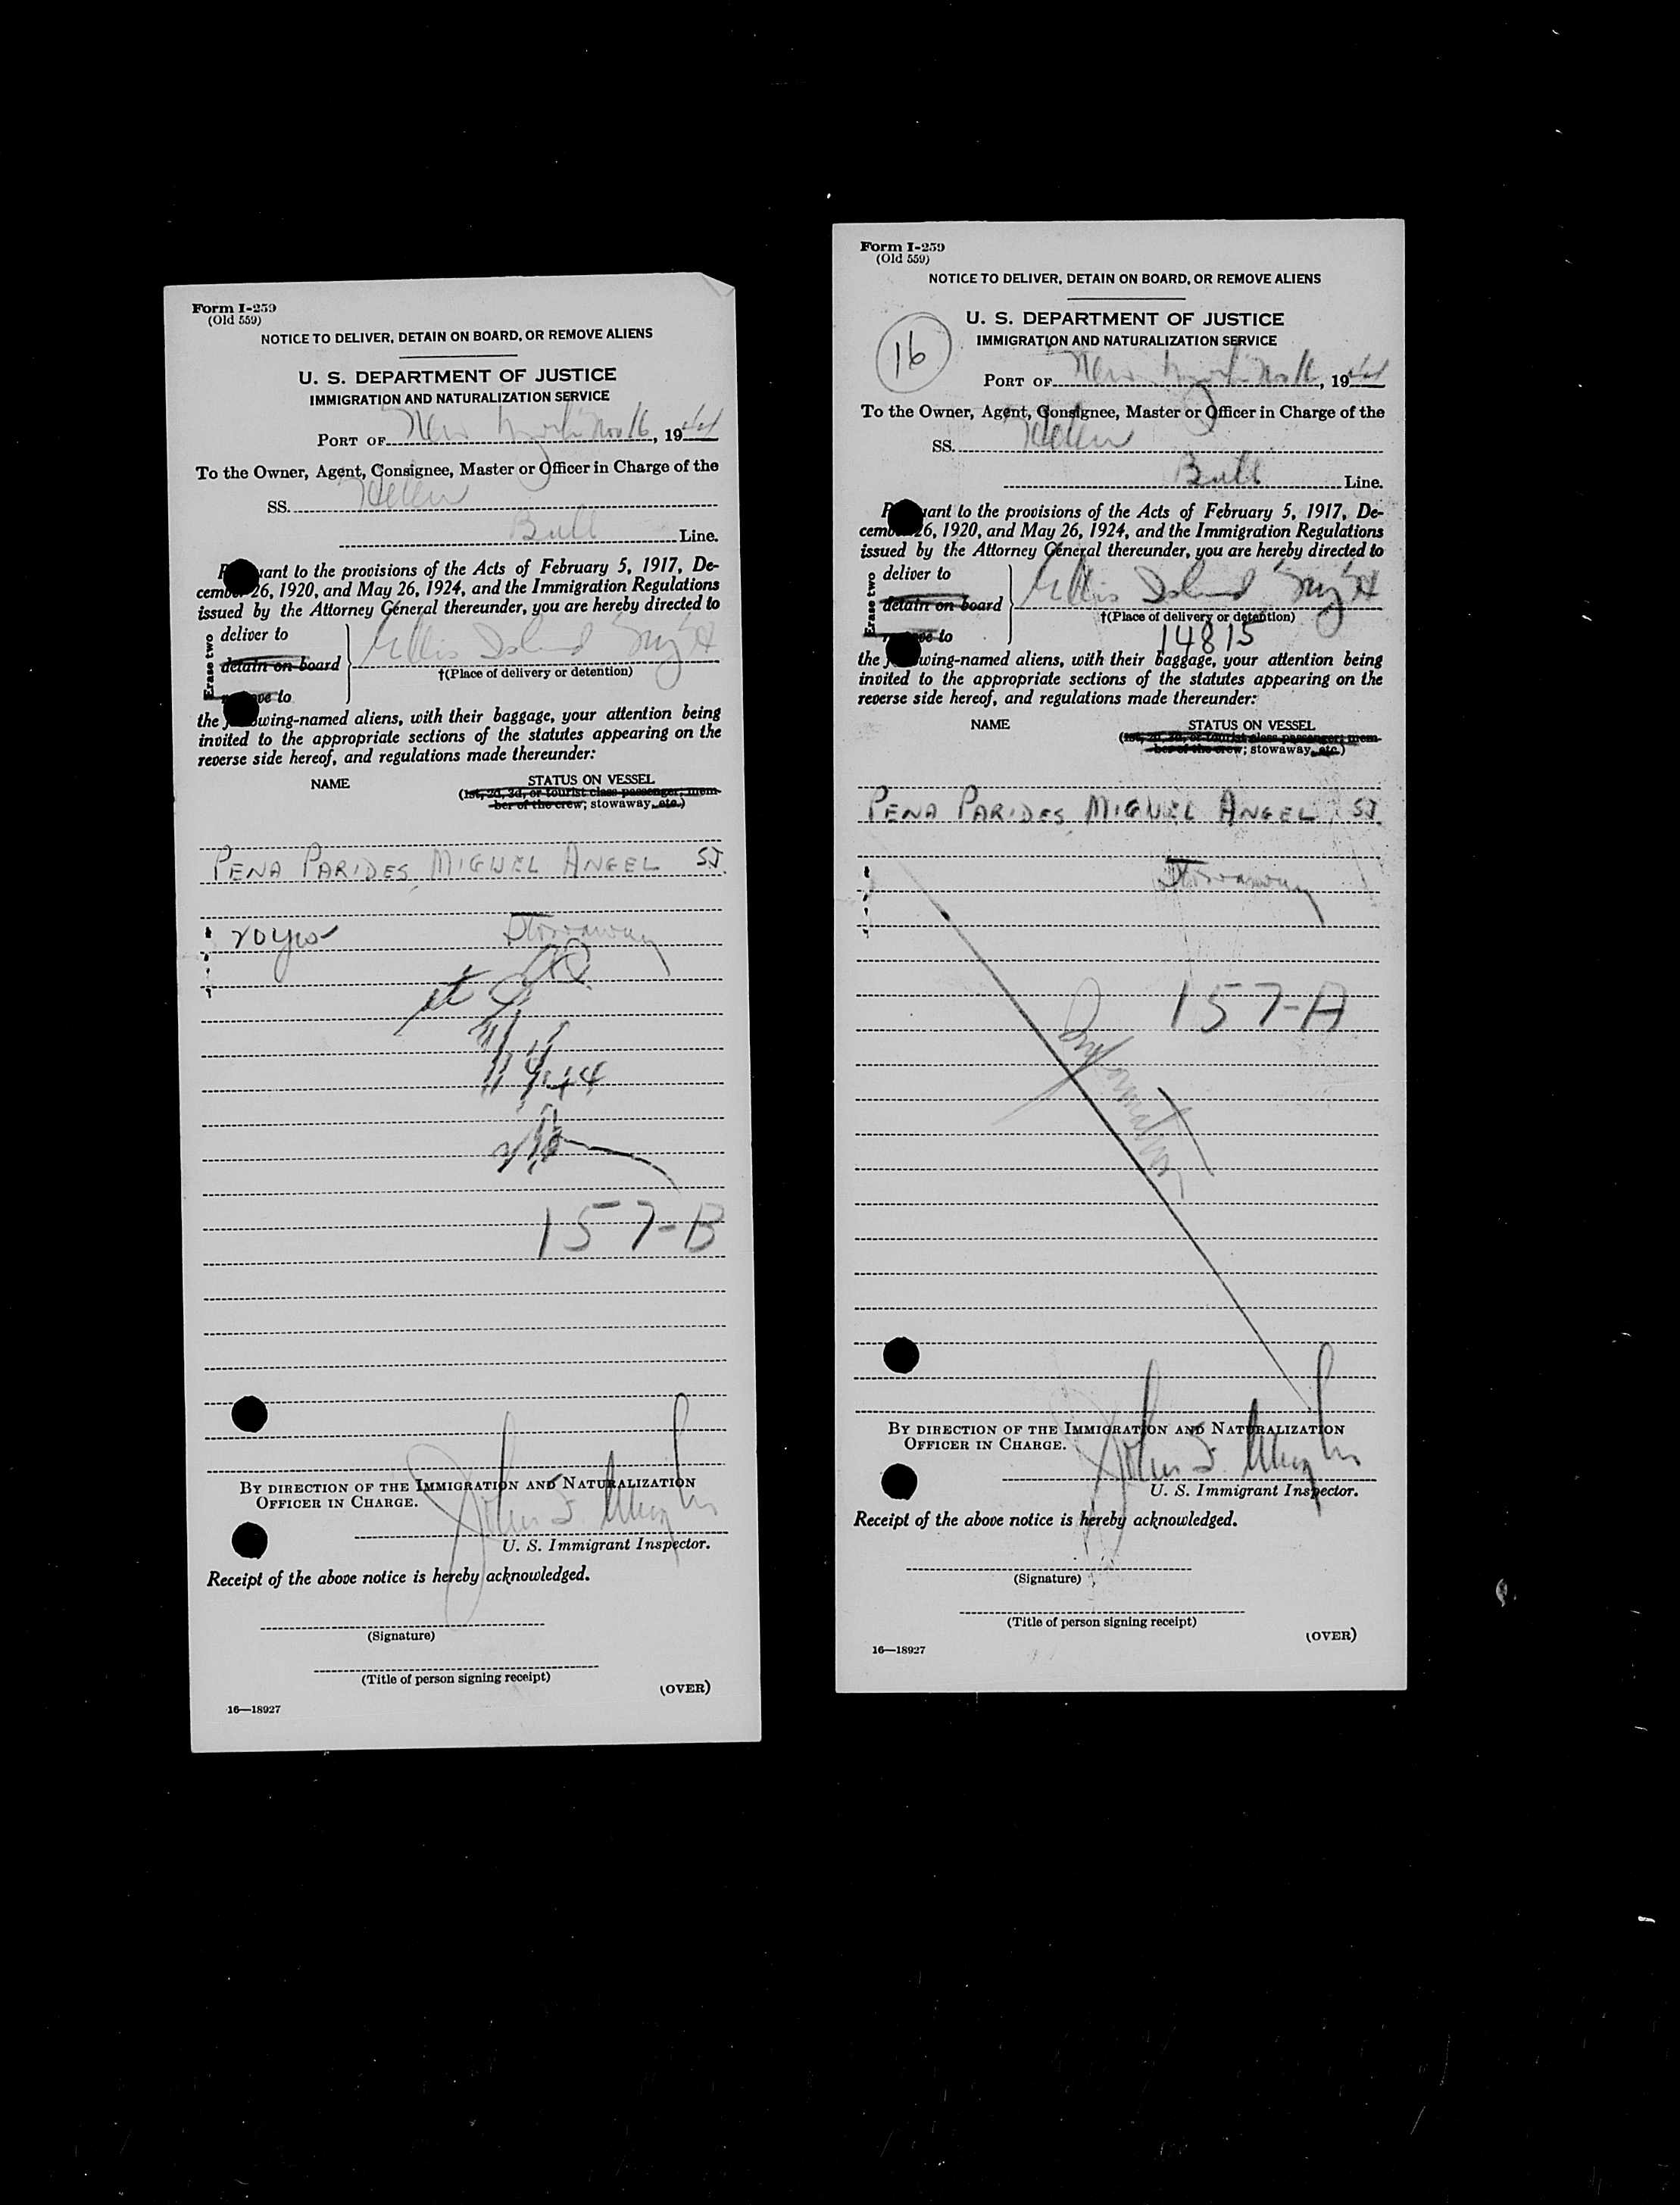 Form I-259
(Old 559)
NOTICE TO DELIVER, DETAIN ON BOARD, OR REMOVE ALIENS
U. S. DEPARTMENT OF JUSTICE
IMMIGRATION AND NATURALIZATION SERVICE
PORT OF New York Nov 16, 1944
To the Owner, Agent, Consignee, Master or Officer in Charge of the
SS. Helen
Bull Line.
uant to the provisions of the Acts of February 5, 1917, De-
cember 26, 1920, and May 26, 1924, and the Immigration Regulations
issued by the Attorney General thereunder, you are hereby directed to
Erase two
deliver to
detain on board
Ellis Island
remove to
†(Place of delivery or detention)
the following-named aliens, with their baggage, your attention being
invited to the appropriate sections of the statutes appearing on the
reverse side hereof, and regulations made thereunder:
NAME
STATUS ON VESSEL
(1st, 2d, 3d, or tourist class passenger; mem-
ber of the crew; stowaway, etc.)
PENA PARIDES, MIGUEL ANGEL SJ.
20 yrs Stowaway
157-B
BY DIRECTION OF THE IMMIGRATION AND NATURALIZATION
OFFICER IN CHARGE.
John
U. S. Immigrant Inspector.
Receipt of the above notice is hereby acknowledged.
(Signature)
(Title of person signing receipt)
(OVER)
16—18927
Form I-259
(Old 559)
NOTICE TO DELIVER, DETAIN ON BOARD, OR REMOVE ALIENS
U. S. DEPARTMENT OF JUSTICE
16
IMMIGRATION AND NATURALIZATION SERVICE
PORT OF New York Nov 16, 1944
To the Owner, Agent, Consignee, Master or Officer in Charge of the
SS. Helen
Bull Line.
uant to the provisions of the Acts of February 5, 1917, De-
cember 26, 1920, and May 26, 1924, and the Immigration Regulations
issued by the Attorney General thereunder, you are hereby directed to
Erase two
deliver to
detain on board
Ellis Island
remove to
†(Place of delivery or detention)
14815
the following-named aliens, with their baggage, your attention being
invited to the appropriate sections of the statutes appearing on the
reverse side hereof, and regulations made thereunder:
NAME
STATUS ON VESSEL
(1st, 2d, 3d, or tourist class passenger; mem-
ber of the crew; stowaway, etc.)
PENA PARIDES, MIGUEL ANGEL SJ.
Stowaway
157-A
Information
BY DIRECTION OF THE IMMIGRATION AND NATURALIZATION
OFFICER IN CHARGE.
John
U. S. Immigrant Inspector.
Receipt of the above notice is hereby acknowledged.
(Signature)
(Title of person signing receipt)
(OVER)
16—18927